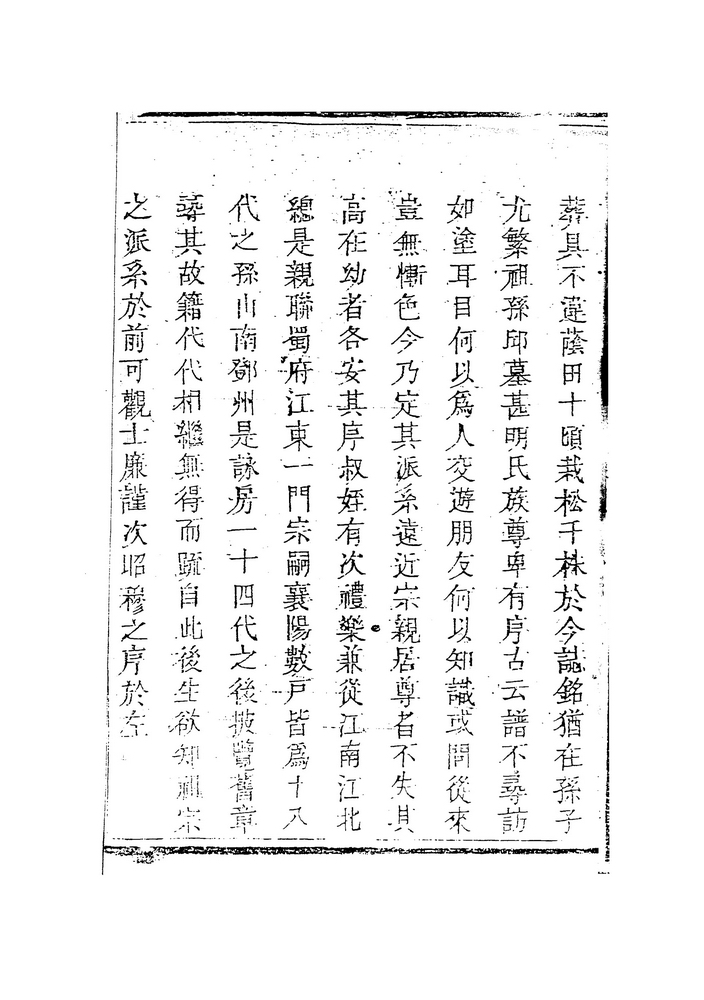 葬具不違蔭田十頃栽松千株於今誌銘猶在孫子
尤繁祖孫邱墓甚明氏族尊卑有序古云譜不尋訪
如塗耳目何以爲人交遊朋友何以知識或問從來
豈無慚色今乃定其派系遠近宗親居尊者不失其
高在幼者各安其序叔姪有次禮樂兼從江南江北
總是親聯蜀府江東一門宗嗣襄陽數戸皆爲十八
代之孫山南鄧州是詠房一十四代之後披覽舊章
尋其故籍代代相繼無得而疏自此後生欲知祖宗
之派系於前可觀士廉謹次昭穆之序於左